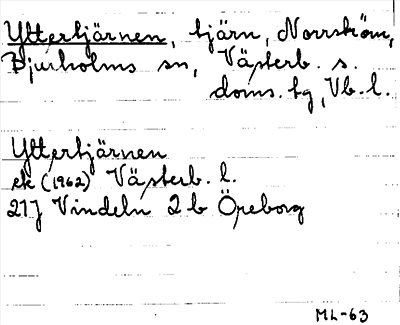 Yttertjärnen, tjärn, Norrström,
Bjurholms sn, Västerb. s.
doms. tg, Vb. l.
Yttertjärnen
ek (1962) Västerb. l.
21J Vindeln 2b Öreborg
ML-63